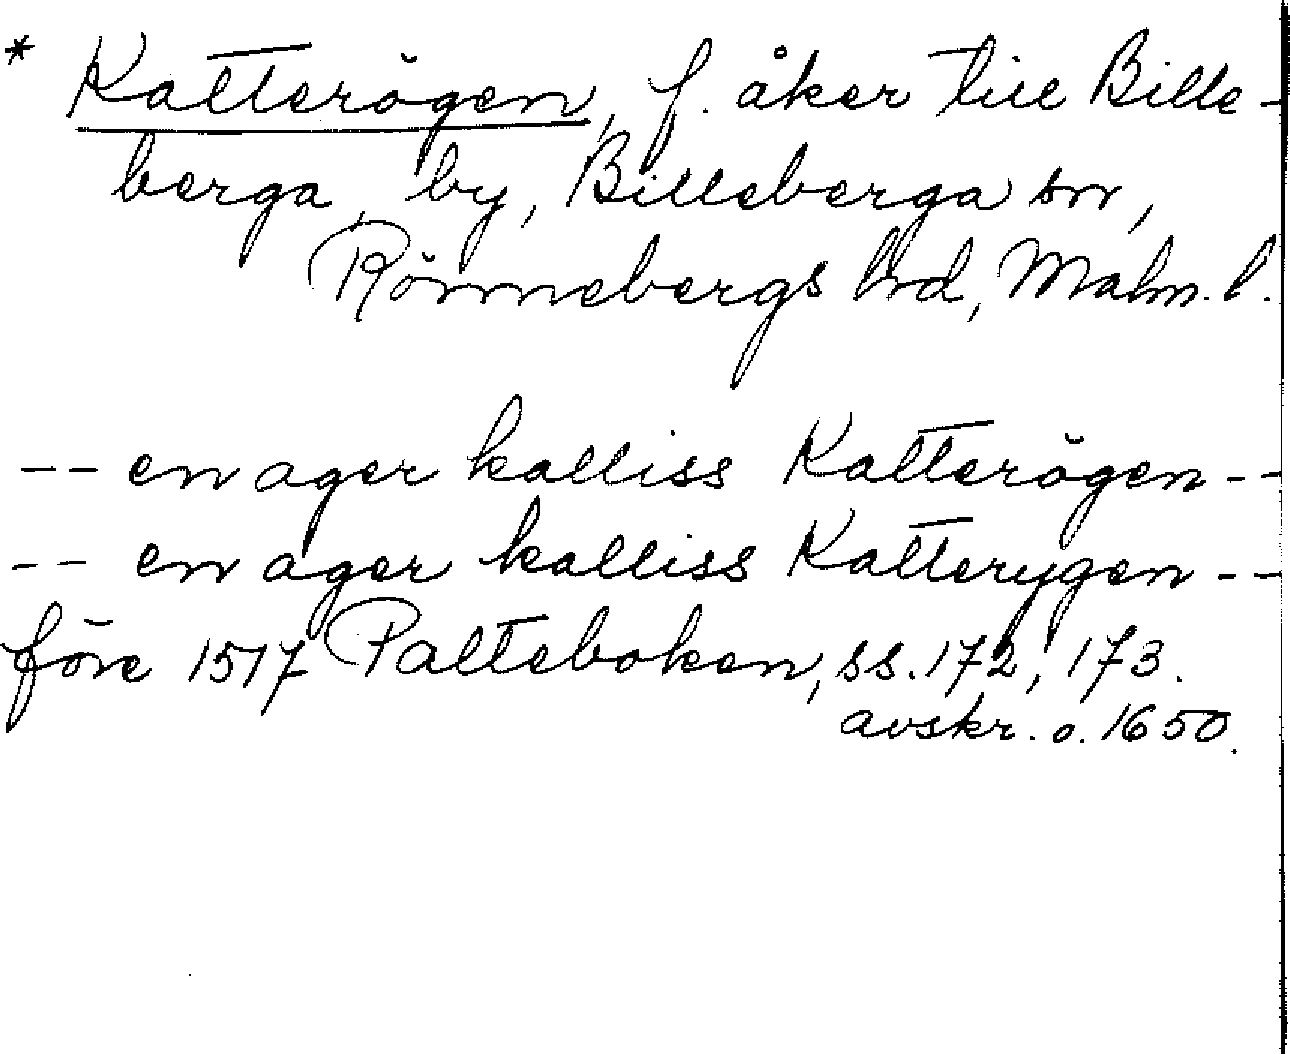 * Katterögen, f. åker till Bille-
berga by, Billeberga sn,
Rönnebergs hd, Malm. l.
-- en ager kalliss Katterögen --
-- en ager kalliss Katterygen --
före 1517 Palteboken, ss. 172, 173.
avskr. o. 1650.